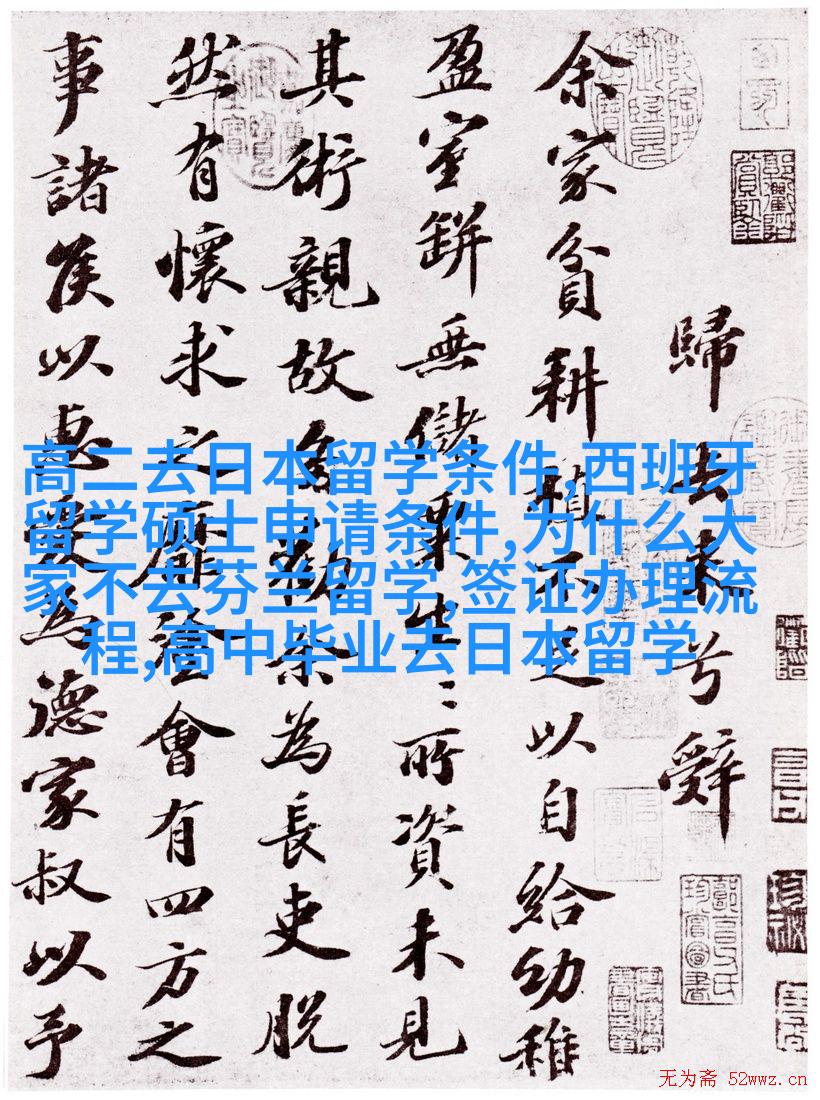 歸去來兮辭
余家貧耕植不足以自給幼稚
盈室缾無儲粟生〻所資未見
其術親故多勸余為長吏脫
然有懷求之靡途會有四方之
事諸侯以惠愛為德家叔以予
高二去日本留学条件,西班牙
留学硕士申请条件,为什么大
家不去芬兰留学,签证办理流
程,高中毕业去日本留学
无为斋 52wwz.cn